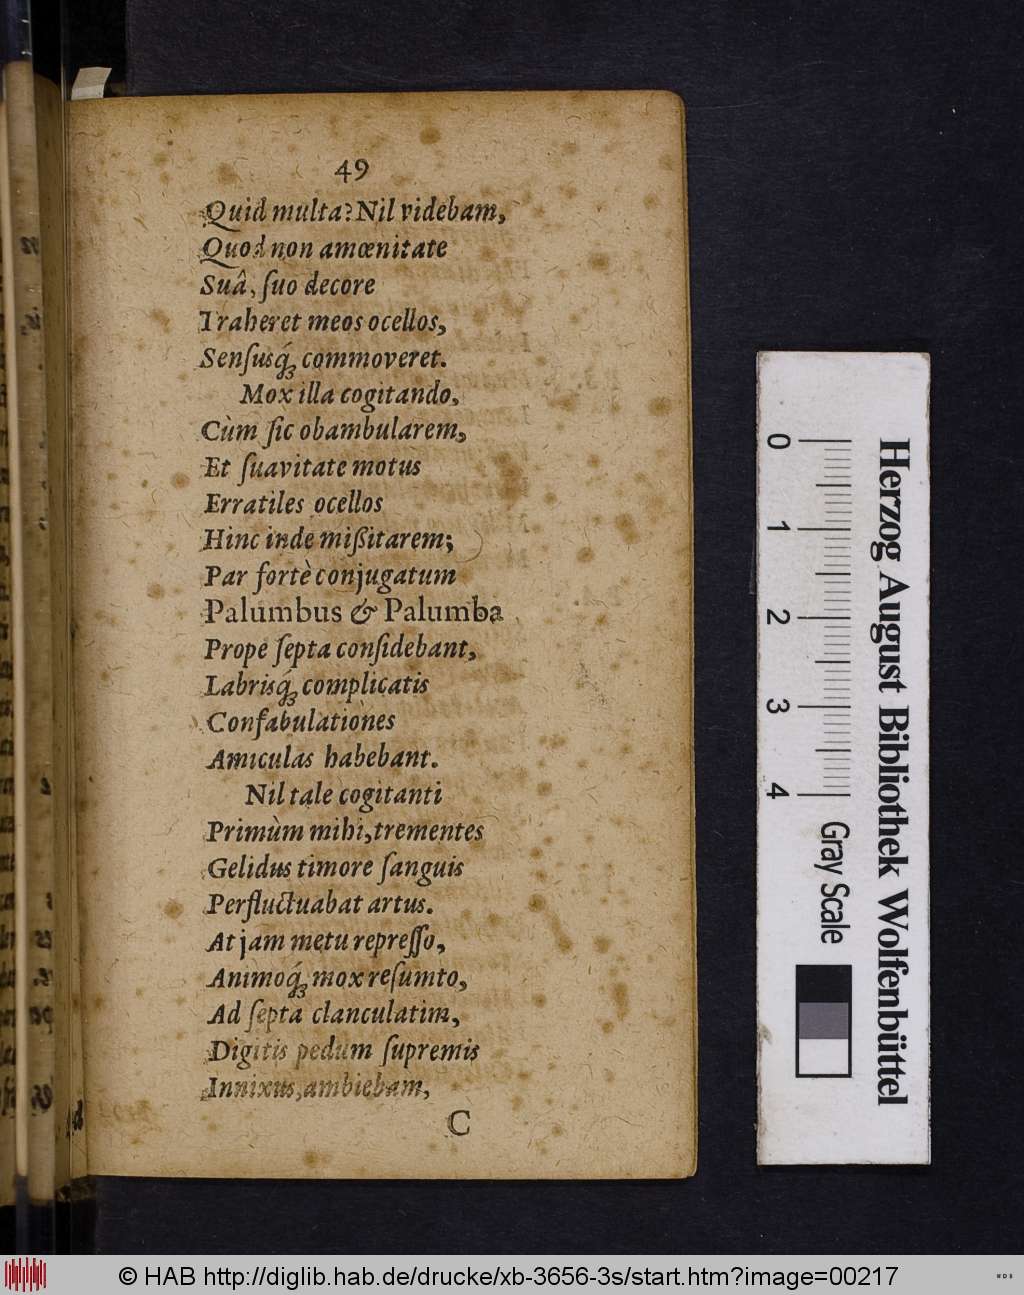 49
Quid multa? Nil videbam,
Quod non amœnitate
Suâ, ſuo decore
Traheret meos ocellos,
Senſusq́ꝫ commoveret.
Mox illa cogitando,
Cùm ſic obambularem,
Et ſuavitate motus
Erratiles ocellos
Hinc inde mißitarem;
Par fortè conjugatum
Palumbus & Palumba
Prope ſepta conſidebant,
Labrisq́ꝫ complicatis
Confabulationes
Amiculas habebant.
Nil tale cogitanti
Primùm mihi, trementes
Gelidus timore ſanguis
Perfluctuabat artus.
At jam metu repreſſo,
Animoq́ꝫ mox reſumto,
Ad ſepta clanculatim,
Digitis pedum ſupremis
Innixus, ambiebam,
C
Herzog August Bibliothek Wolfenbüttel
0 1 2 3 4 Gray Scale
© HAB http://diglib.hab.de/drucke/xb-3656-3s/start.htm?image=00217